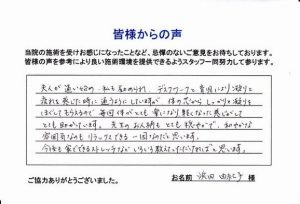 皆様からの声
当院の施術を受けお感じになったことなど、忌憚のないご意見をお待ちしております。
皆様の声を参考により良い施術環境を提供できるようスタッフ一同努力して参ります。
夫人が通い始め、私も勧められ、デスクワークと育児により凝りと
疲れを感じた時に通うようにしていますが、体の芯からしっかりと凝りを
ほぐしてもらえるので、毎回体がとても楽になり軽くなった感じがして
とても助かっています。先生のお人柄もとても穏やかで、和やかな
雰囲気なのもリラックスできる一因なのだと思います。
今後も家でできるストレッチなどいろいろ教えていただければと思います。
ご協力ありがとうございました。
お名前 浜田 様